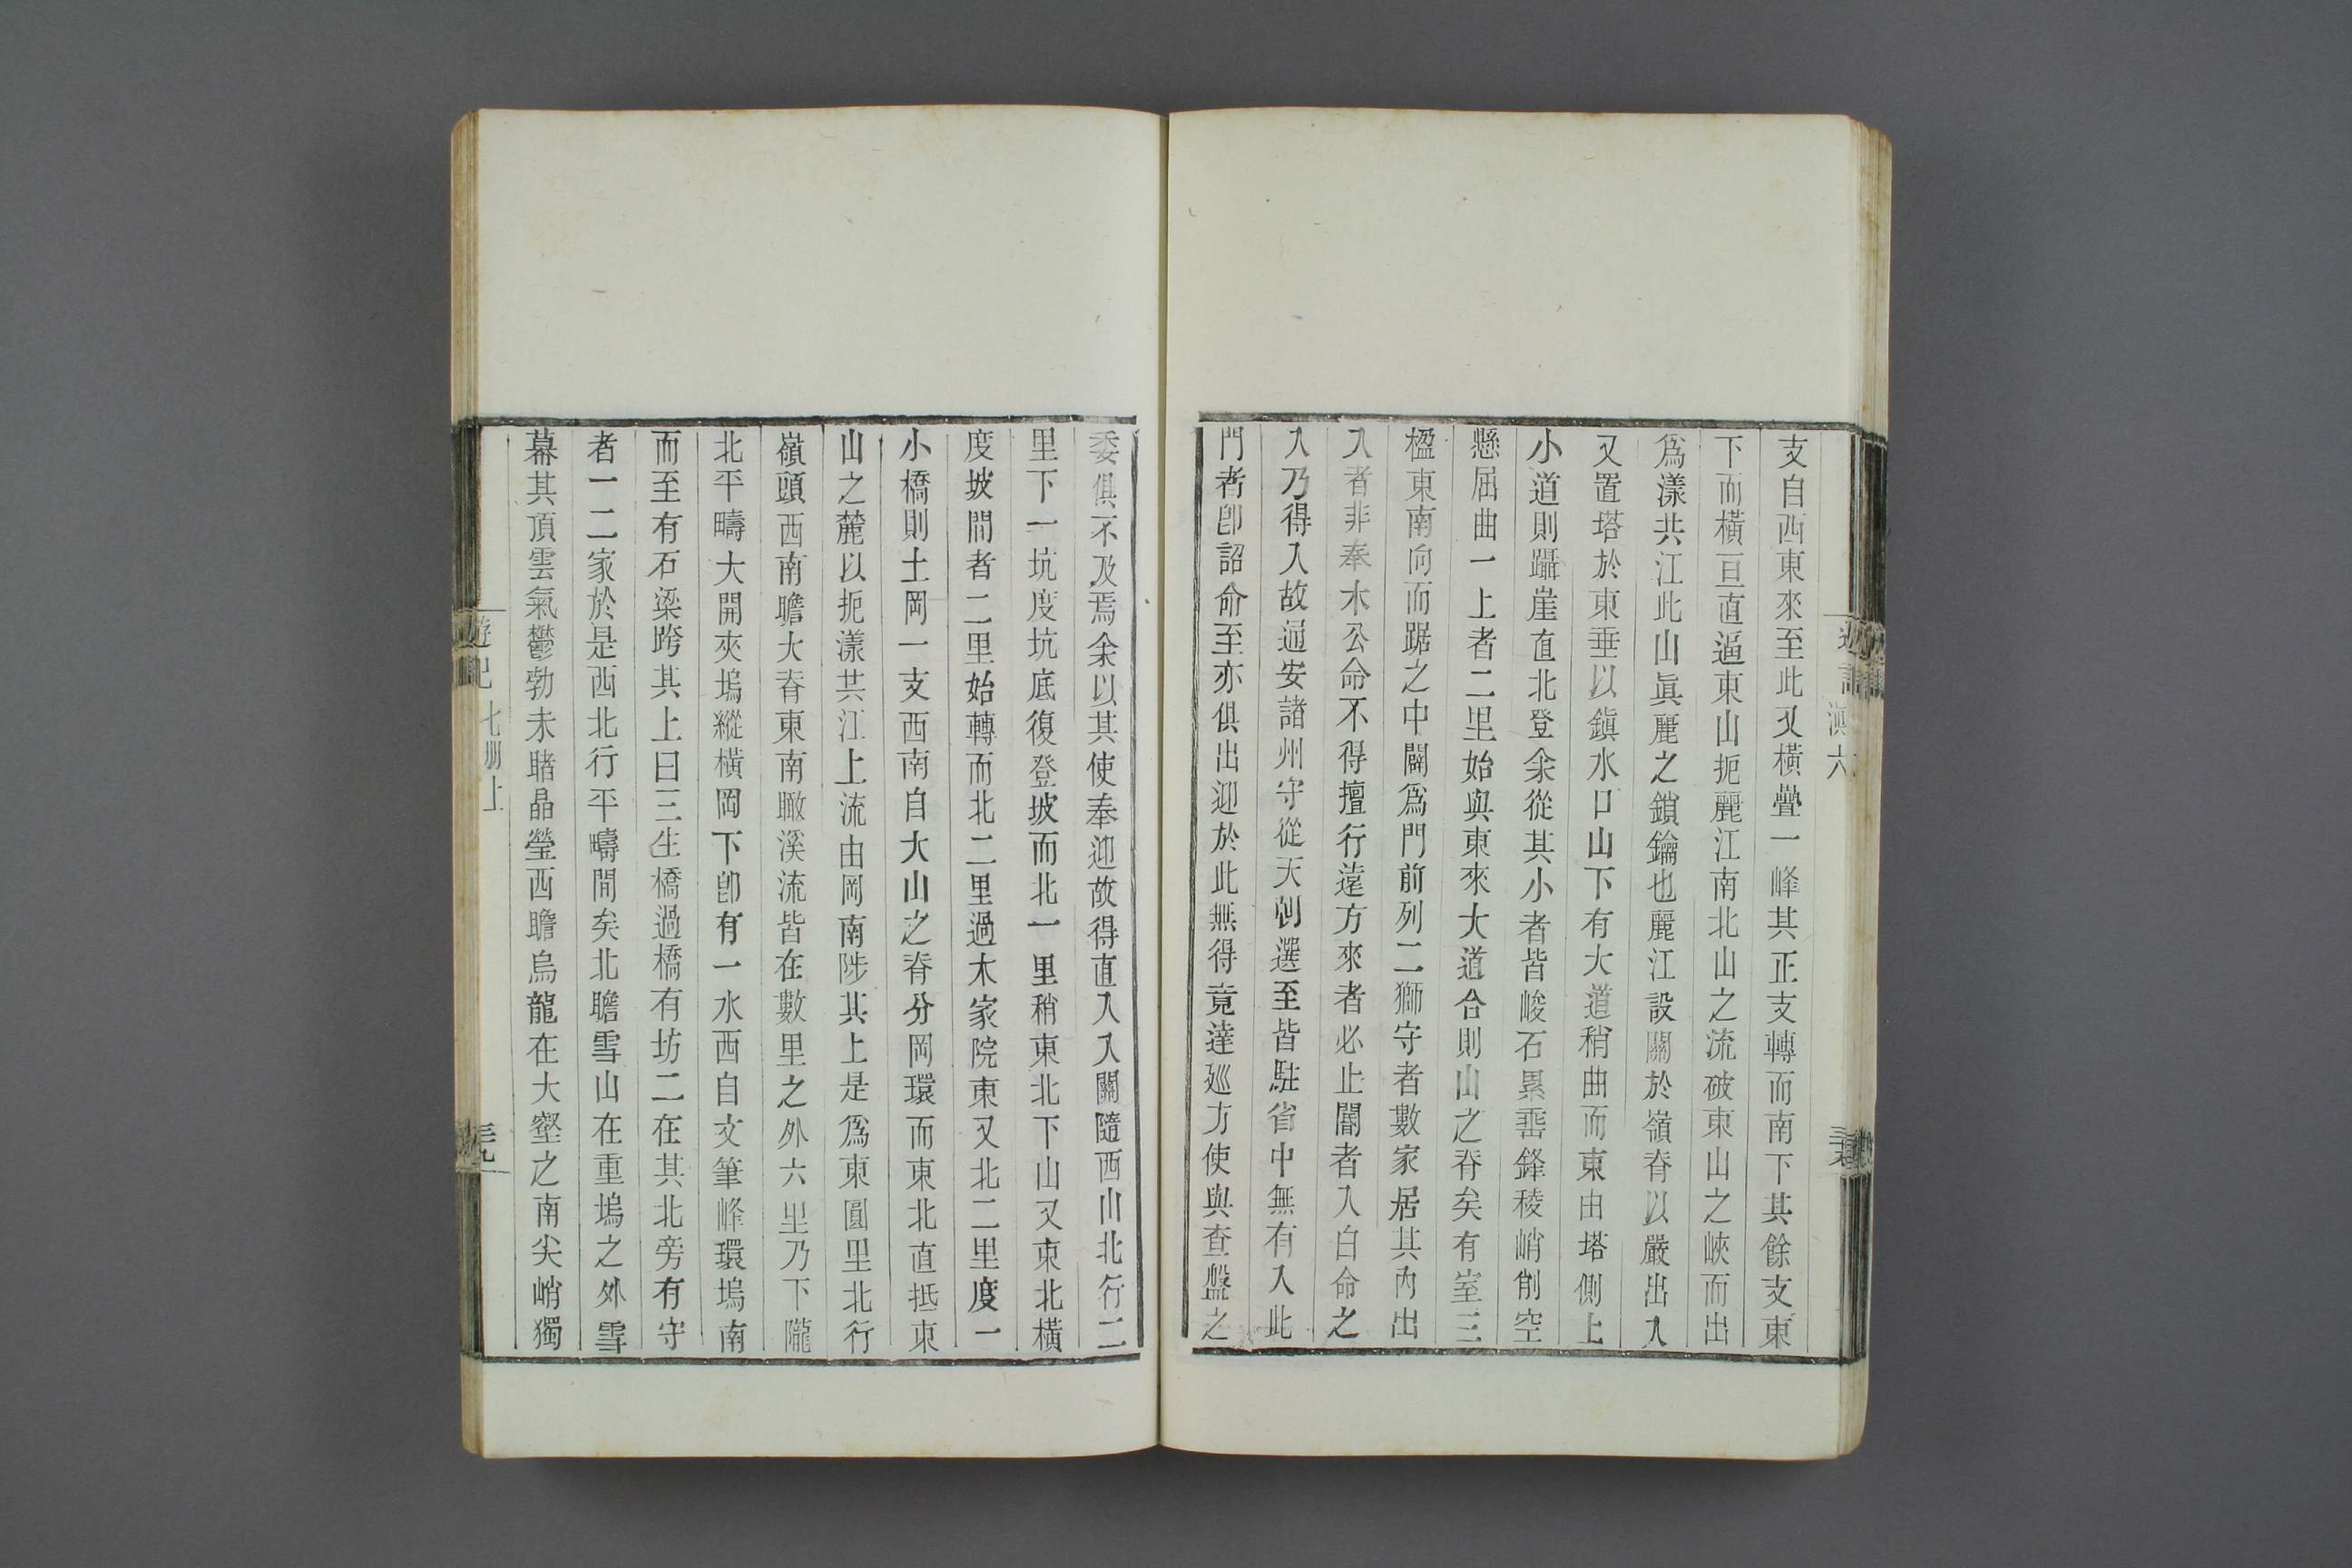 支自西東來至此又橫疊一峰其正支轉而南下其餘支東
下而橫亘直逼東山扼麗江南北山之流破東山之峽而出
爲漾共江此山眞麗之鎖鑰也麗江設關於嶺脊以嚴出入
又置塔於東垂以鎭水口山下有大道稍曲而東由塔側上
小道則躡崖直北登余從其小者皆峻石累垂鋒稜峭削空
懸屈曲一上者二里始與東來大道合則山之脊矣有室三
楹東南向而踞之中闢爲門前列二獅守者數家居其內出
入者非奉木公命不得擅行遠方來者必止閽者入白命之
入乃得入故通安諸州守從天朝選至皆駐省中無有入此
門者卽詔命至亦俱出迎於此無得竟達巡方使與查盤之
委俱不及焉余以其使奉迎故得直入入關隨西山北行二
里下一坑度坑底復登坡而北一里稍東北下山又東北橫
度坡間者二里始轉而北二里過木家院東又北二里度一
小橋則土岡一支西南自大山之脊分岡環而東北直抵東
山之麓以扼漾共江上流由岡南陟其上是爲東圓里北行
嶺頭西南瞻大脊東南瞰溪流皆在數里之外六里乃下隴
北平疇大開夾塢縱橫岡下卽有一水西自文筆峰環塢南
而至有石梁跨其上曰三生橋過橋有坊二在其北旁有守
者一二家於是西北行平疇間矣北瞻雪山在重塢之外雪
幕其頂雲氣鬱勃未睹晶瑩西瞻烏龍在大壑之南尖峭獨
遊記 七册上